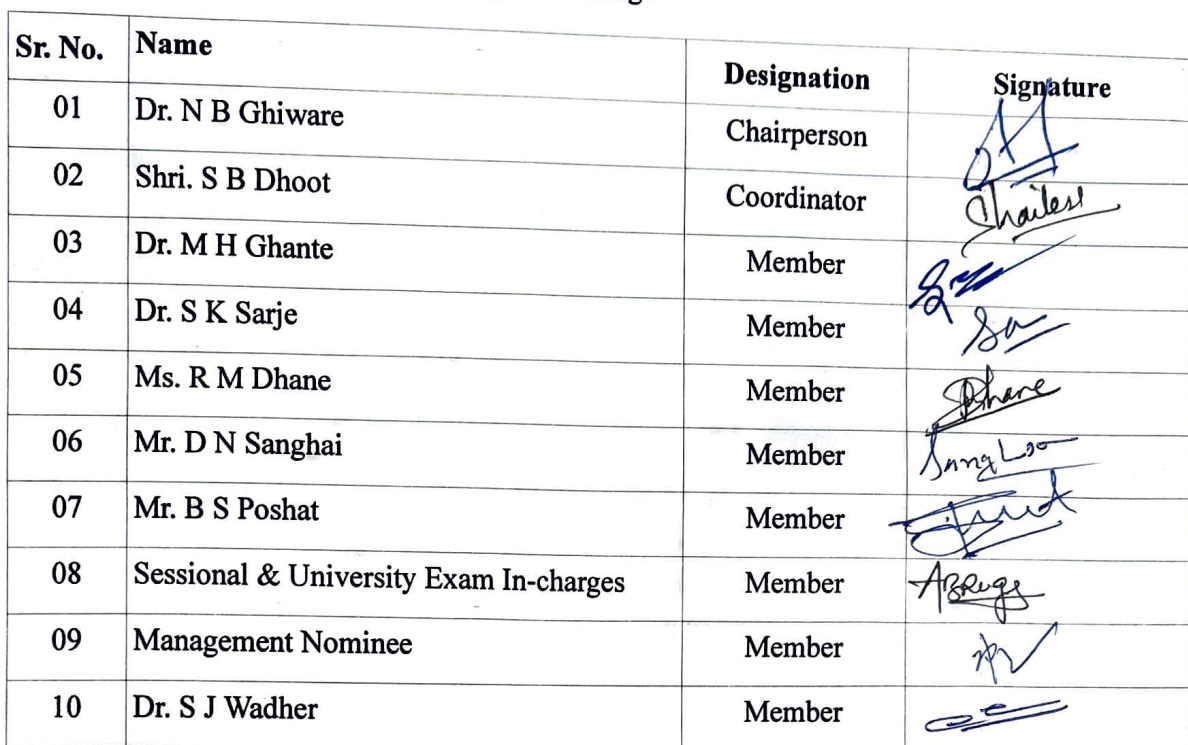 Sr. No. Name Designation Signature
01 Dr. N B Ghiware Chairperson
02 Shri. S B Dhoot Coordinator Shailesh
03 Dr. M H Ghante Member
04 Dr. S K Sarje Member
05 Ms. R M Dhane Member Dhane
06 Mr. D N Sanghai Member
07 Mr. B S Poshat Member
08 Sessional & University Exam In-charges Member
09 Management Nominee Member
10 Dr. S J Wadher Member